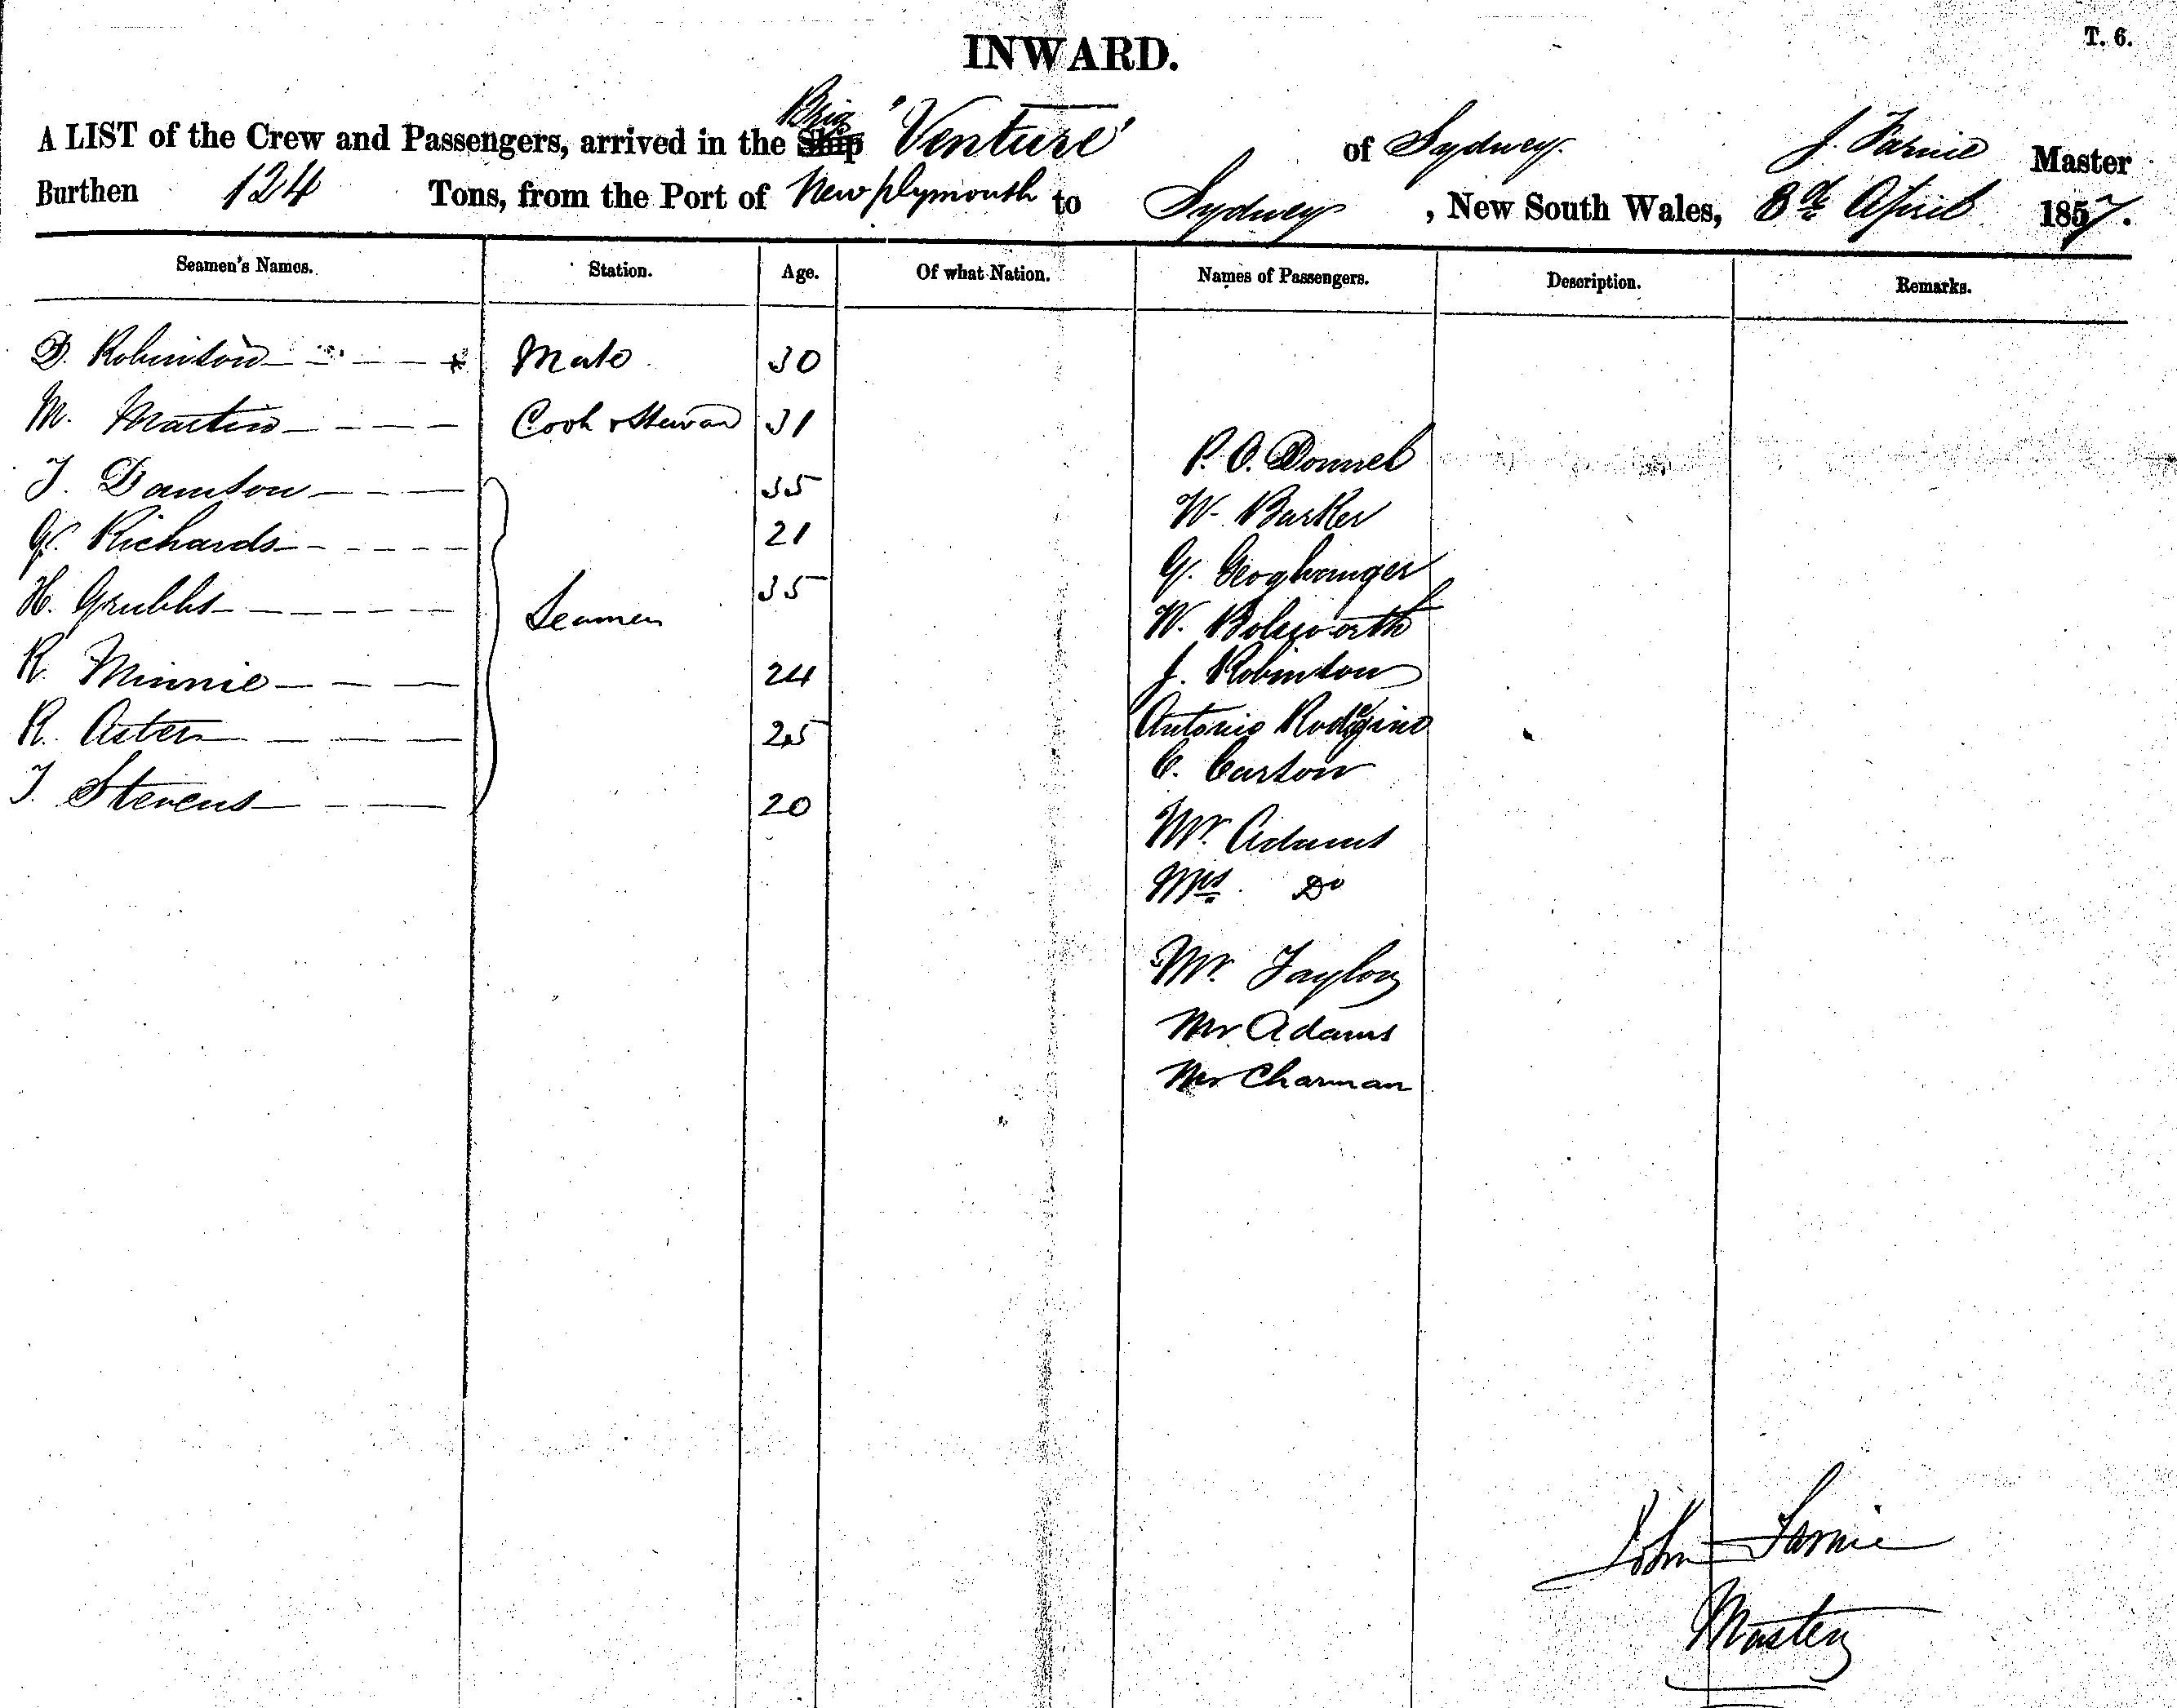 INWARD.
T. 6.
A LIST of the Crew and Passengers, arrived in the Ship Brig "Venture" of Sydney. J. Farnie Master
Burthen 124 Tons, from the Port of New Plymouth to Sydney, New South Wales, 8th April 1857.
Seamen's Names. Station. Age. Of what Nation. Names of Passengers. Description. Remarks.
D. Robinson Mate 30
M. Martin Cook & Steward 31
P. O. Donnel
J. Damson 35
W. Barker
G. Richards 21
G.
H. Grubbs Seamen 35
W. Bolsworth
R. Minnie 24
J. Robinson
R. 25
Antonio
C. Carson
T. Stevens 20
Mr. Adams
Mrs Do
Mr. Taylor
Mr Adams
Mr Charman
John Farnie
Master